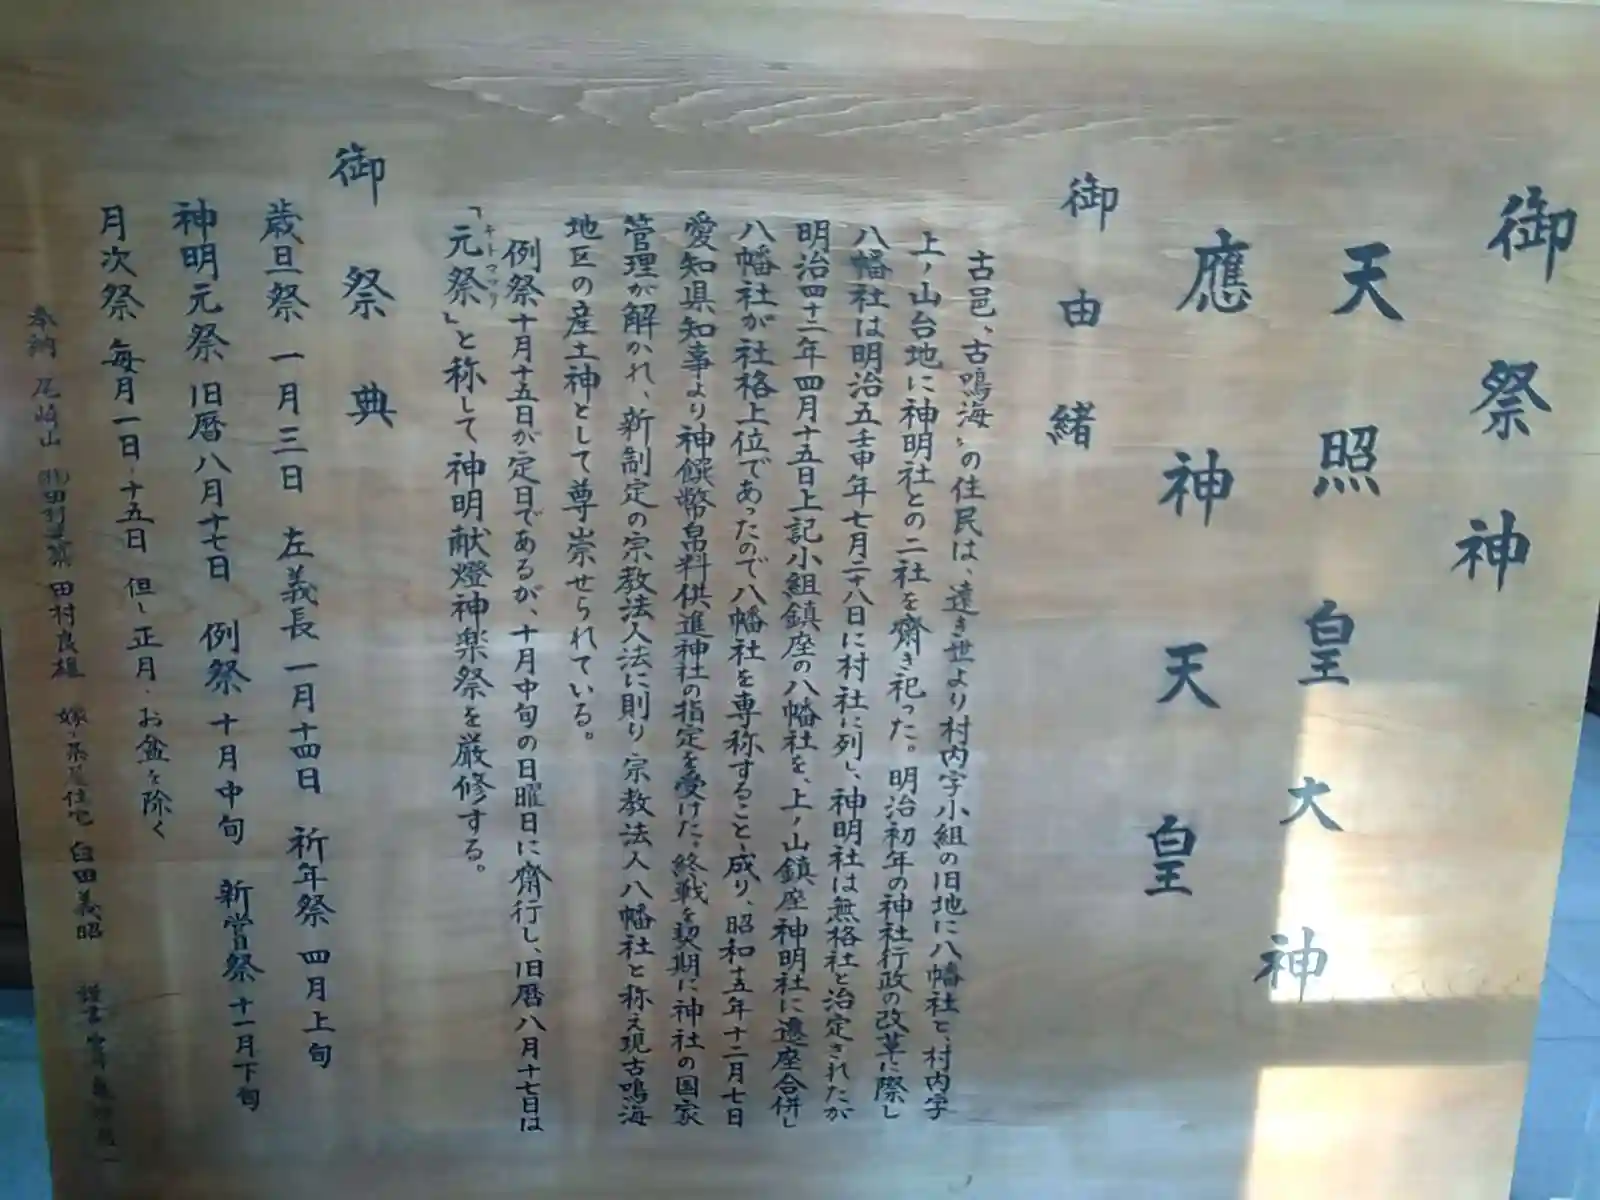 御祭神
天照皇大神
應神天皇
御由緒
古邑、"古鳴海"の住民は、遠き世より村内字小組の旧地に八幡社と、村内字
上ノ山台地に神明社との二社を齋き祀った。明治初年の神社行政の改革に際し
八幡社は明治五壬申年七月二八日に村社に列し、神明社は無格社と治定されたが
明治四十二年四月十五日上記小組鎮座の八幡社を、上ノ山鎮座神明社に遷座合併し
八幡社が社格上位であったので八幡社を専称すること丶成り、昭和十五年十二月七日
愛知県知事より神饌幣帛料供進神社の指定を受けた。終戦を契期に神社の国家
管理が解かれ、新制定の宗教法人法に則り宗教法人八幡社と称え現古鳴海
地区の産土神として尊崇せられている。
例祭十月十五日が定日であるが、十月中旬の日曜日に齋行し、旧暦八月十七日は
「元祭」と称して神明献燈神楽祭を厳修する。
御祭典
歳旦祭 一月三日 左義長 一月十四日 祈年祭 四月上旬
神明元祭 旧暦八月十七日 例祭 十月中旬 新嘗祭 十一月下旬
月次祭 毎月一日・十五日 但し正月・お盆を除く
奉納 尾崎山 田村良雄 住宅 白田義昭